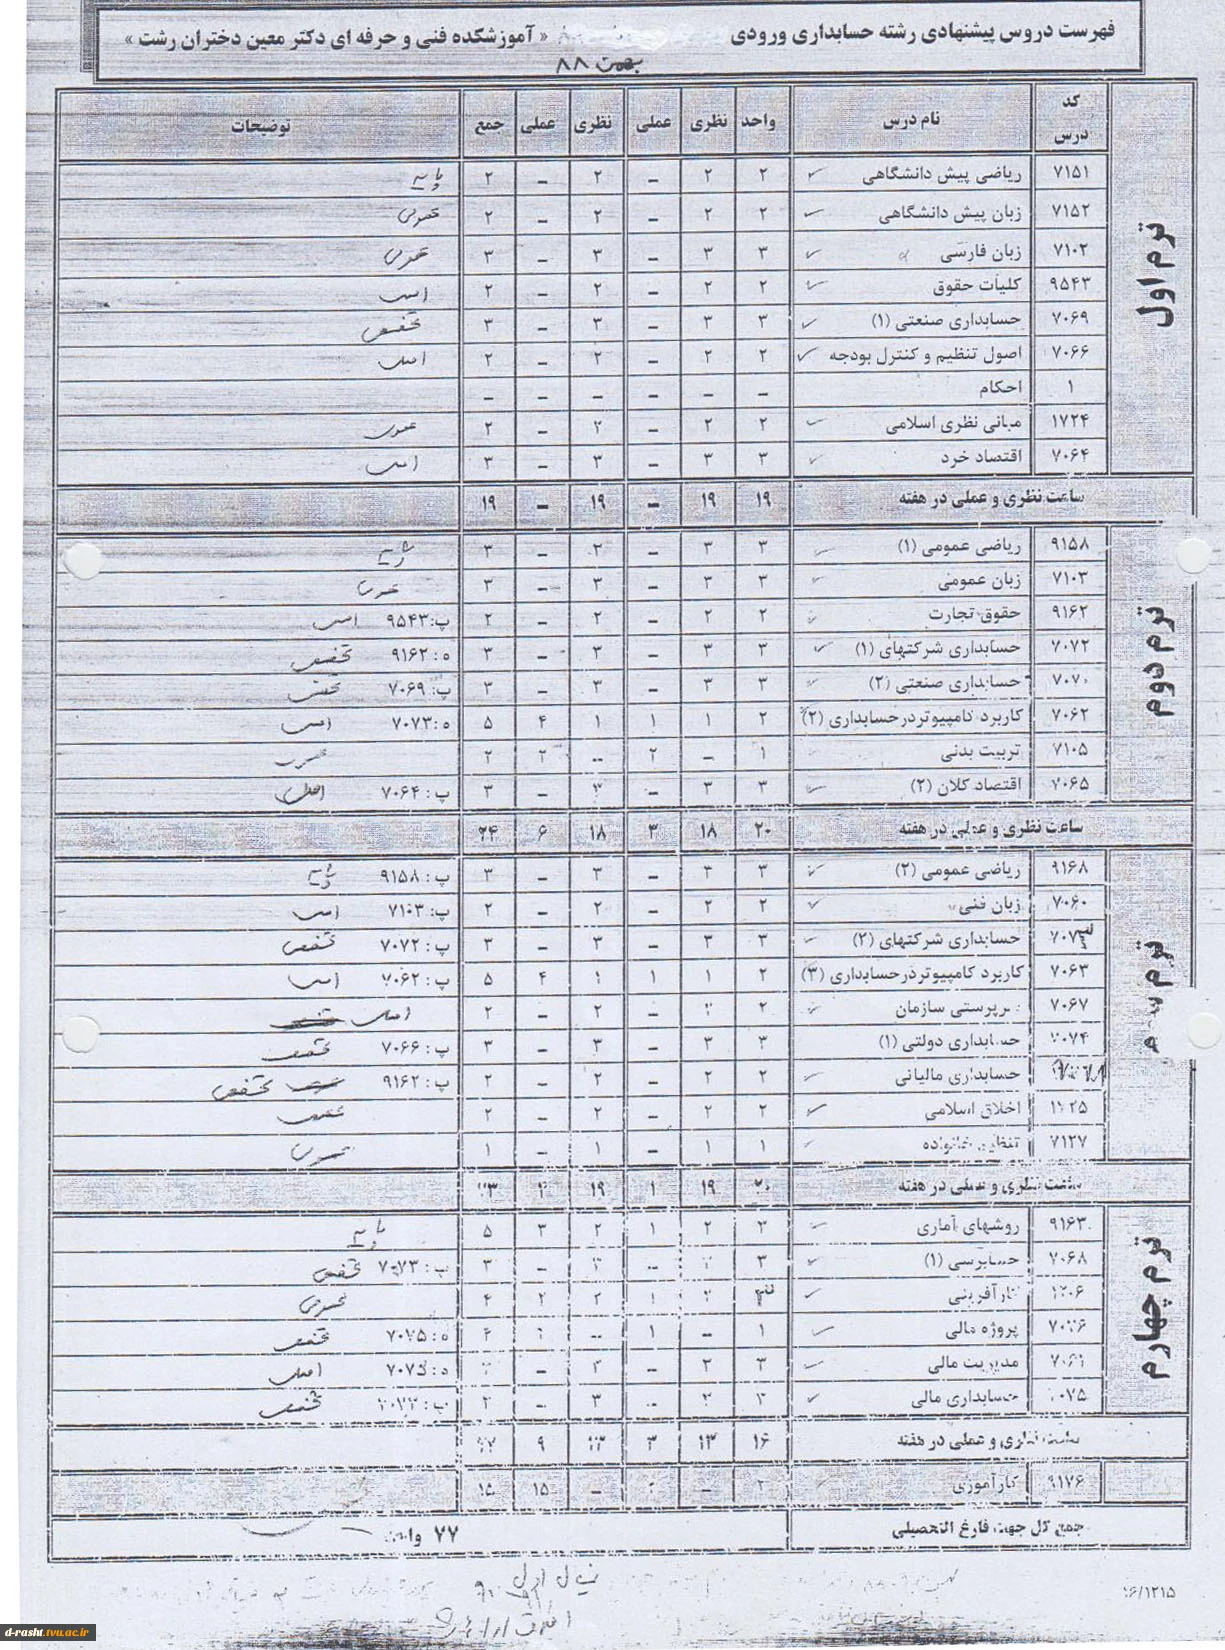 فهرست دروس پیشنهادی رشته حسابداری ورودی « آموزشکده فنی و حرفه ای دکتر معین دختران رشت »
بهمن ۸۸
کد درس نام درس واحد نظری عملی نظری عملی جمع توضیحات
ترم اول
۷۱۵۱ ریاضی پیش دانشگاهی ۲ ۲ – ۲ – ۲ پایه
۷۱۵۲ زبان پیش دانشگاهی ۲ ۲ – ۲ – ۲ عمومی
۷۱۰۲ زبان فارسی ۳ ۳ – ۳ – ۳ عمومی
۹۵۴۳ کلیات حقوق ۲ ۲ – ۲ – ۲ اصلی
۷۰۶۹ حسابداری صنعتی (۱) ۳ ۳ – ۳ – ۳ تخصصی
۷۰۶۶ اصول تنظیم و کنترل بودجه ۲ ۲ – ۲ – ۲ اصلی
۱ احکام – – – – – –
۱۷۲۴ مبانی نظری اسلامی ۲ ۲ – ۲ – ۲ عمومی
۷۰۶۴ اقتصاد خرد ۳ ۳ – ۳ – ۳ اصلی
ساعت نظری و عملی در هفته ۱۹ ۱۹ – ۱۹ – ۱۹
ترم دوم
۹۱۵۸ ریاضی عمومی (۱) ۳ ۳ – ۳ – ۳ پایه
۷۱۰۳ زبان عمومی ۳ ۳ – ۳ – ۳ عمومی
۹۱۶۲ حقوق تجارت ۲ ۲ – ۲ – ۲ پ:۹۵۴۳ اصلی
۷۰۷۲ حسابداری شرکتهای (۱) ۳ ۳ – ۳ – ۳ ه:۹۱۶۲ تخصصی
۷۰۷۰ حسابداری صنعتی (۲) ۳ ۳ – ۳ – ۳ پ:۷۰۶۹ تخصصی
۷۰۶۲ کاربرد کامپیوتردرحسابداری (۲) ۲ ۱ ۱ ۱ ۴ ۵ ه:۷۰۷۳ اصلی
۷۱۰۵ تربیت بدنی ۱ – ۲ – ۲ ۲ عمومی
۷۰۶۵ اقتصاد کلان (۲) ۳ ۳ – ۳ – ۳ پ:۷۰۶۴ اصلی
ساعت نظری و عملی در هفته ۲۰ ۱۸ ۳ ۱۸ ۶ ۲۴
۹۱۶۸ ریاضی عمومی (۲) ۳ ۳ – ۳ – ۳ پ:۹۱۵۸ پایه
۷۰۶۰ زبان فنی ۲ ۲ – ۲ – ۲ پ:۷۱۰۳ اصلی
حسابداری شرکتهای (۲) ۳ ۳ – ۳ – ۳ پ:۷۰۷۲ تخصصی
۷۰۶۳ کاربرد کامپیوتردرحسابداری (۳) ۲ ۱ ۱ ۱ ۴ ۵ پ:۷۰۶۲ اصلی
۷۰۶۷ سرپرستی سازمان ۲ ۲ – ۲ – ۲ اصلی
۷۰۷۴ حسابداری دولتی (۱) ۳ ۳ – ۳ – ۳ پ:۷۰۶۶ تخصصی
حسابداری مالیاتی ۲ ۲ – ۲ – ۲ پ:۹۱۶۲ تخصصی
اخلاق اسلامی ۲ ۲ – ۲ – ۲
۷۱۲۷ تنظیم خانواده ۱ ۱ – ۱ – ۱ عمومی
ساعت نظری و عملی در هفته ۱۹ ۱ ۱۹
ترم چهارم
۹۱۶۳ روشهای آماری ۳ ۲ ۱ ۲ ۳ ۵ پایه
۷۰۶۸ حسابرسی (۱) ۳ – ۳ پ:۷۰۷۳ تخصصی
کارآفرینی ۱ ۲ ۲ ۴ عمومی
پروژه مالی ۱ – ۱ – ه:۷۰۷۵ تخصصی
مدیریت مالی ۳ ۳ – ۳ – ه:۷۰۷۵ اصلی
۷۰۷۵ حسابداری مالی ۳ – تخصصی
ساعت نظری و عملی در هفته ۱۶ ۱۳ ۳ ۱۳ ۹
۹۱۷۶ کارآموزی ۲ – – ۱۵ ۱۵
جمع کل جهت فارغ التحصیلی ۷۷ واحد
۱۶/۱۲۱۵
d-rasht.tvu.ac.ir